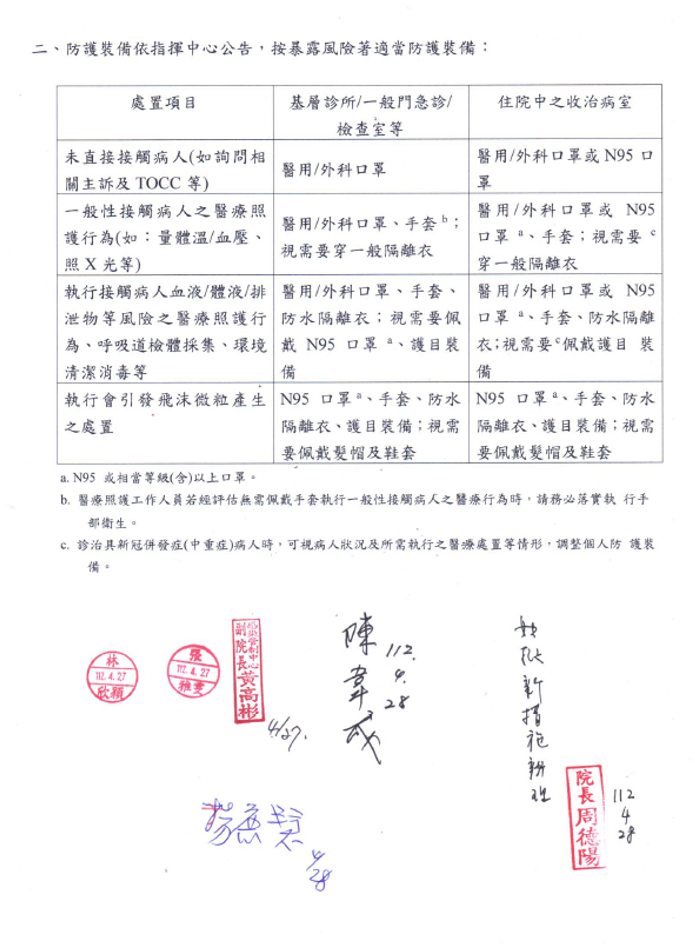 二、防護裝備依指揮中心公告，按暴露風險著適當防護裝備：
處置項目
基層診所/一般門急診/
檢查室等
住院中之收治病室
未直接接觸病人(如詢問相
關主訴及 TOCC 等)
醫用/外科口罩
醫用/外科口罩或 N95 口
罩
一般性接觸病人之醫療照
護行為(如：量體溫/血壓、
照 X 光等)
醫用/外科口罩、手套 b；
視需要穿一般隔離衣
醫用/外科口罩或 N95
口罩 a、手套；視需要 c
穿一般隔離衣
執行接觸病人血液/體液/排
泄物等風險之醫療照護行
為、呼吸道檢體採集、環境
清潔消毒等
醫用/外科口罩、手套、
防水隔離衣；視需要佩
戴 N95 口罩 a、護目裝
備
醫用/外科口罩或 N95
口罩 a、手套、防水隔離
衣;視需要c佩戴護目 裝
備
執行會引發飛沫微粒產生
之處置
N95 口罩a、手套、防水
隔離衣、護目裝備；視需
要佩戴髮帽及鞋套
N95 口罩a、手套、防水
隔離衣、護目裝備；視需
要佩戴髮帽及鞋套
a. N95 或相當等級(含)以上口罩。
b. 醫療照護工作人員若經評估無需佩戴手套執行一般性接觸病人之醫療行為時，請務必落實執 行手
部衛生。
c. 診治具新冠併發症(中重症)病人時，可視病人狀況及所需執行之醫療處置等情形，調整個人防 護裝
備。
林
112.4.27
欣穎
張
112.4.27
雅雯
感染管制中心
副院長黃高彬
4/27.
陳
112.
4.
28
院長周德陽
112
4
28
4/28